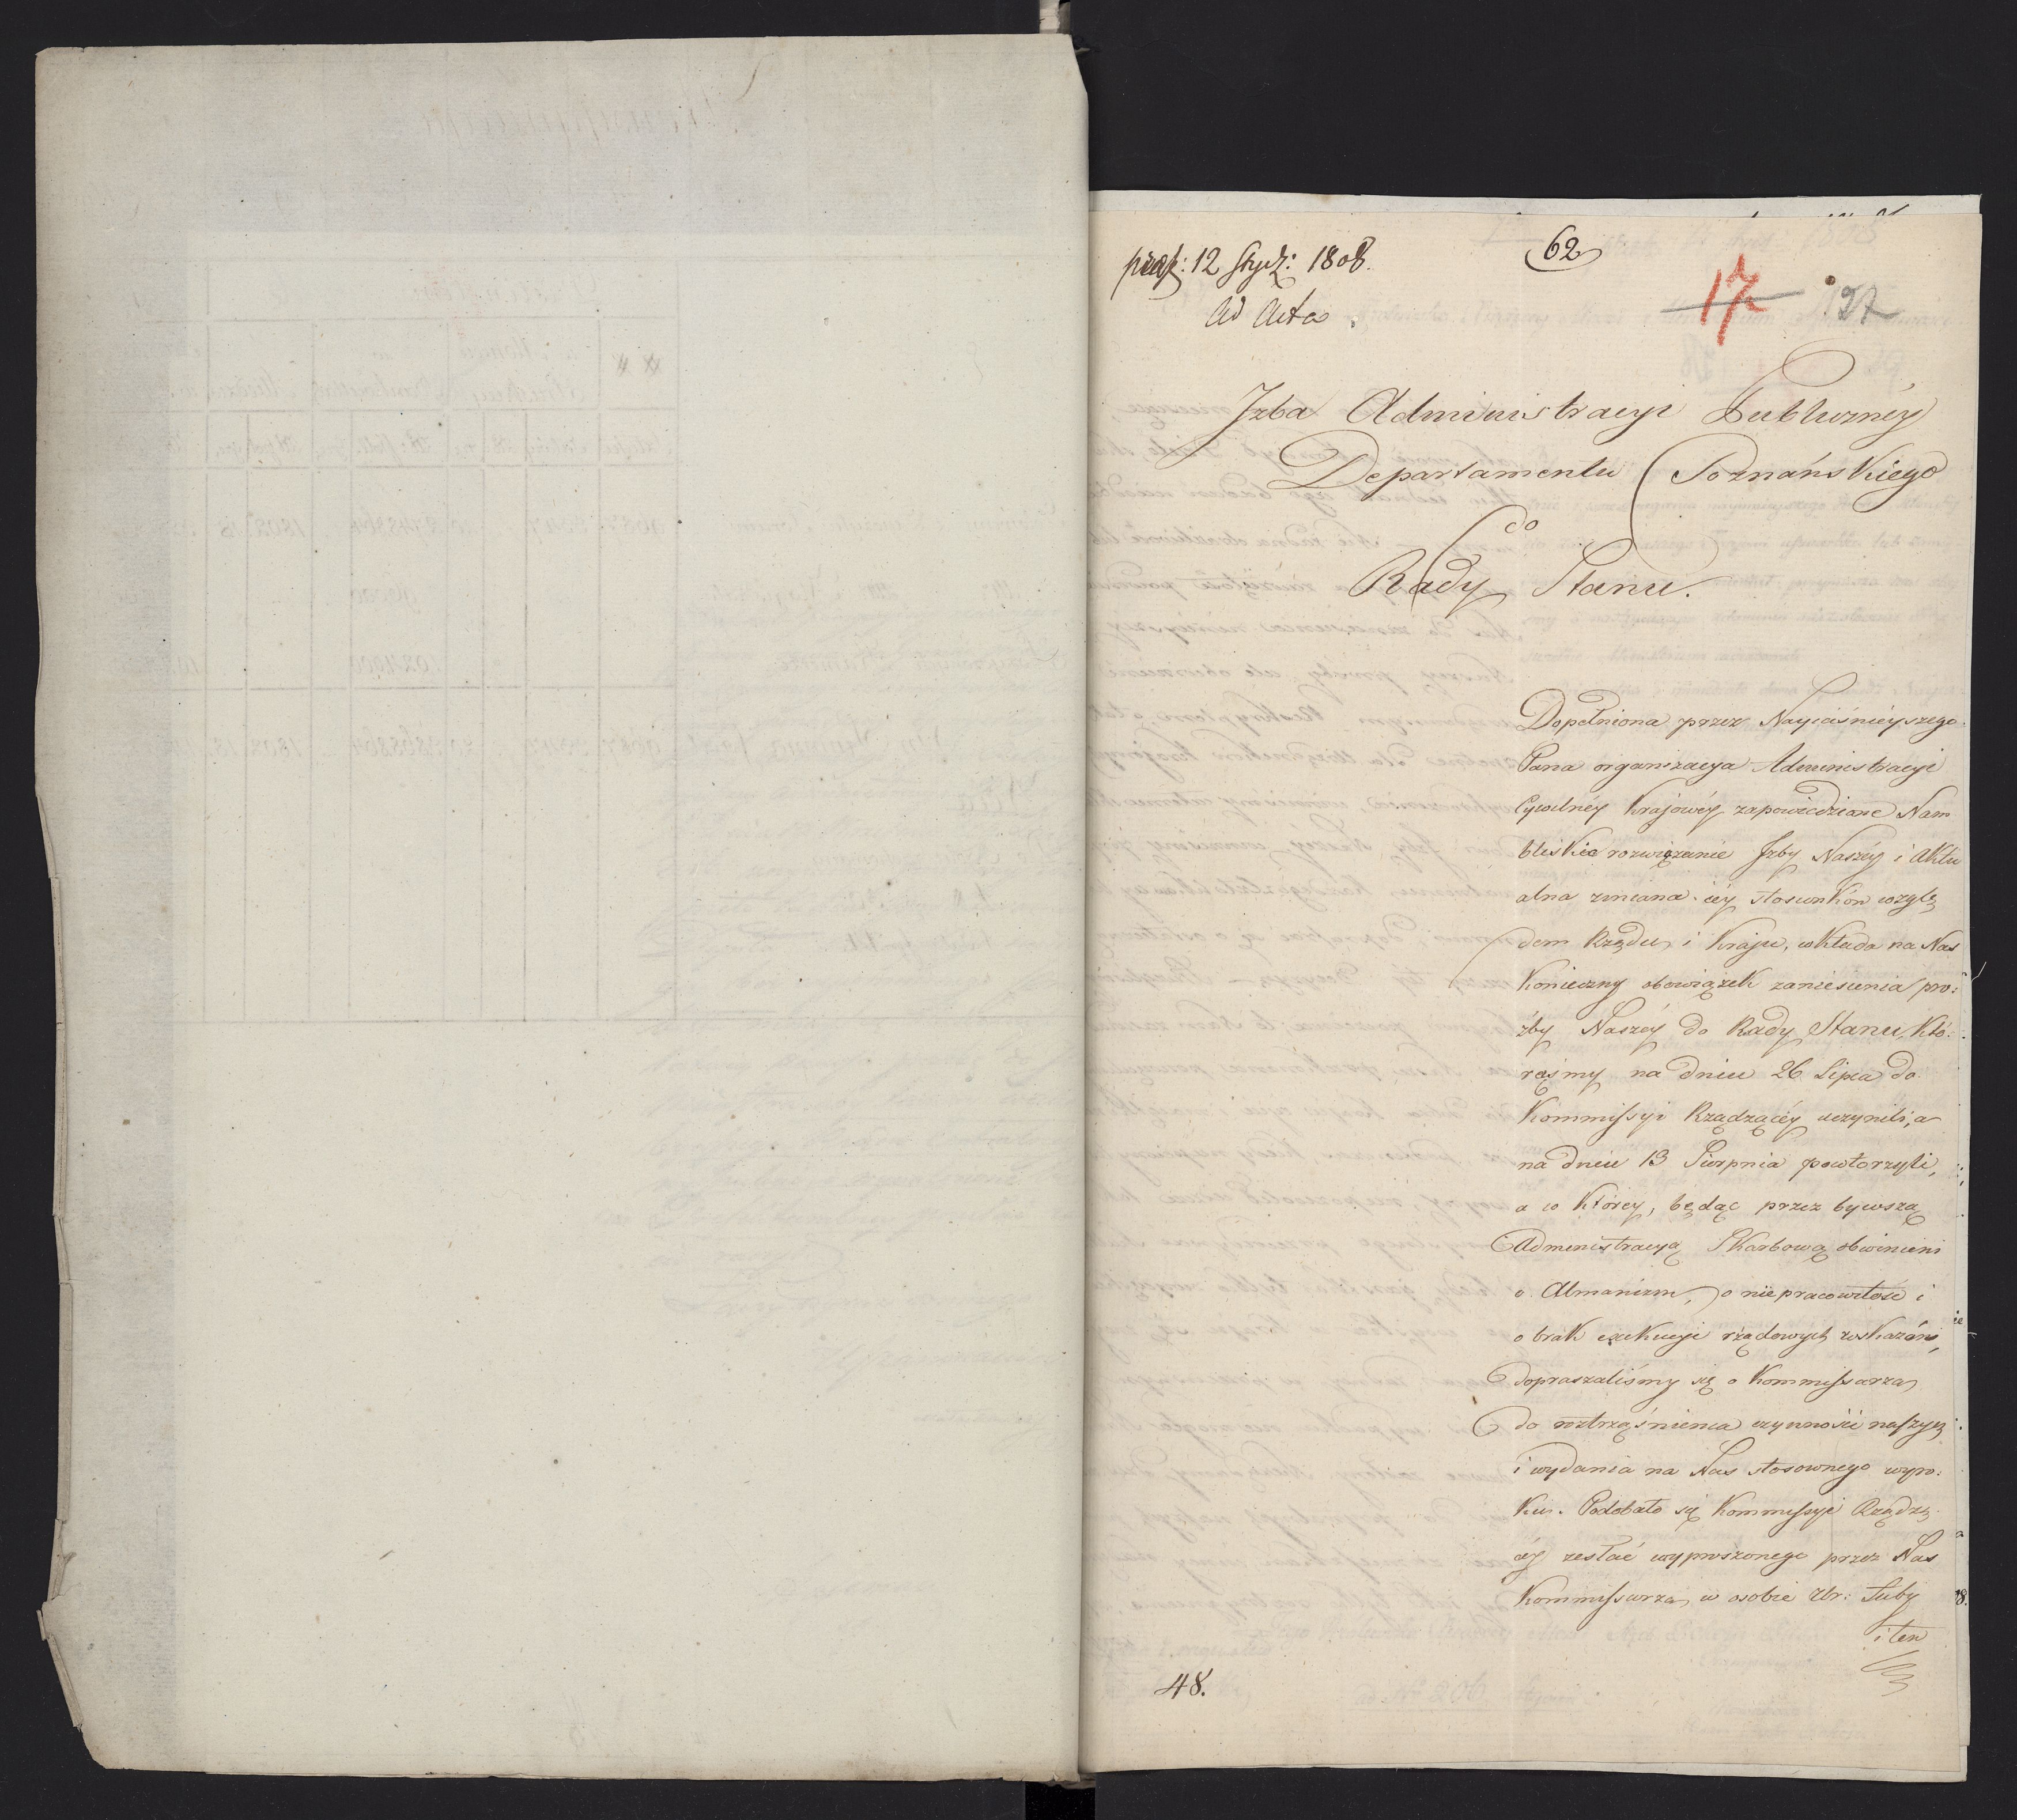 præs: 12 Stycz: 1808.
Ad Acta.
62
17
27
Jzba Administracyi Publiczney
Departamentu Poznańskiego
do
Rady Stanu.
Dopełniona przez Nayiaśnieyszego
Pana organizacya Administracyi
Cywilnéy Krajowéy zapowiedziane Nam
bliskie rozwiązanie Jzby Naszéy i aktu
alna zmiana iéy stosunków wzglę
dem Rządu i Kraju, wkłada na Nas
konieczny obowiązek zaniesienia pro:
źby Naszéy do Rady Stanu, Któ:
rąśmy na dniu 26 Lipca do
Kommissyi Rządzącéy uczynili, a
na dniu 13 Sierpnia powtorzyli,
a w którey, będąc przez bywszą
Administracyą Skarbową obwinieni
o niepracowitość i
o brak exekucyi rządowych wskazów,
dopraszaliśmy się o Kommissarza
do roztrząśnienia czynności naszych
i wydania na Nas stosownego wyro:
ku. Podobało się Kommissyi Rządzą
céy zesłać wyproszonego przez Nas
Kommissarza w osobie Ur: Łuby
i ten
48.